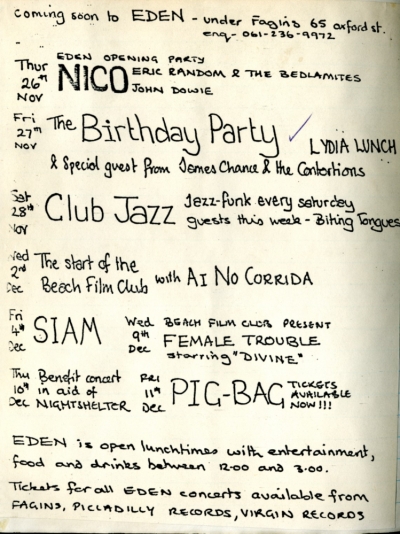 coming soon to EDEN - under Fagins 65 oxford st.
enq- 061-236-9972
EDEN OPENING PARTY
Thur 26th Nov
NICO
ERIC RANDOM & THE BEDLAMITES
JOHN DOWIE
Fri 27th Nov
The Birthday Party
LYDIA LUNCH
& Special guest from James Chance & the Contortions
Sat 28th Nov
Club Jazz
Jazz-funk every saturday
guests this week - Biting Tongues
Wed 2nd Dec
The start of the
Beach Film Club with AI NO CORRIDA
Fri 4th Dec
SIAM
Wed 9th Dec
BEACH FILM CLUB PRESENT
FEMALE TROUBLE
starring "DIVINE"
Thu 10th Dec
Benefit concert
in aid of
NIGHTSHELTER
FRI 11th Dec
PIG-BAG
TICKETS
AVAILABLE
NOW!!!
EDEN is open lunchtimes with entertainment,
food and drinks between 12.00 and 3.00.
Tickets for all EDEN concerts available from
FAGINS, PICCADILLY RECORDS, VIRGIN RECORDS